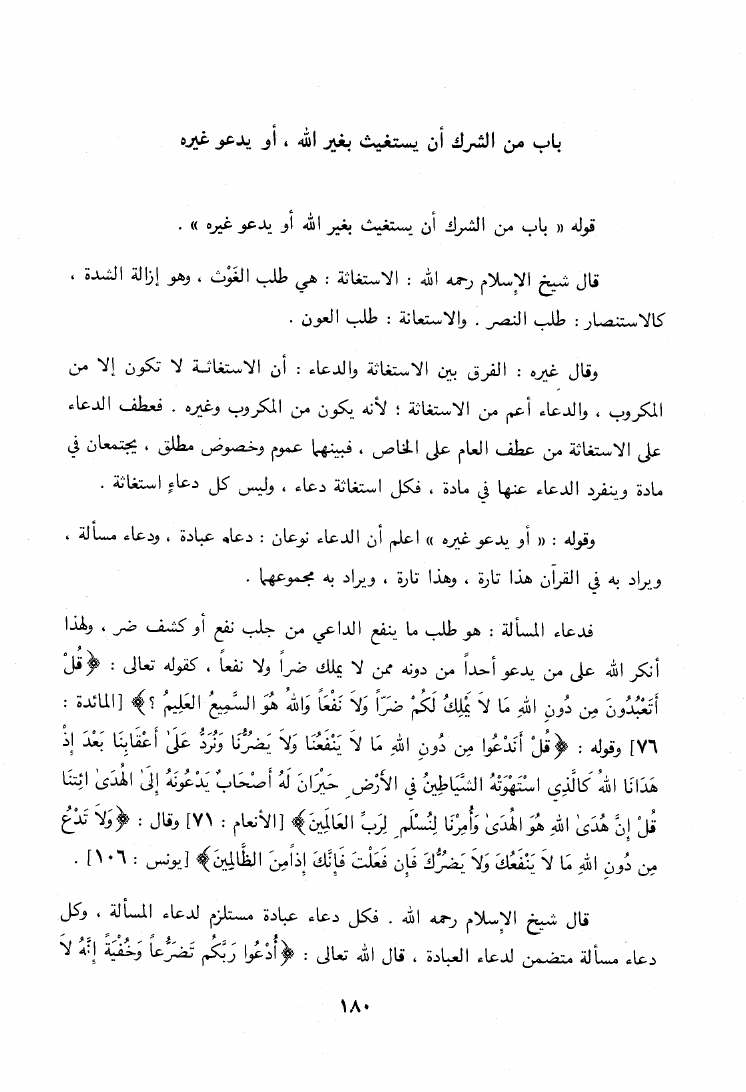 باب من الشرك أن يستغيث بغير الله ، أو يدعو غيره
قوله « باب من الشرك أن يستغيث بغير الله أو يدعو غيره » .
قال شيخ الإسلام رحمه الله : الاستغاثة : هي طلب الغَوْث ، وهو إزالة الشدة ،
كالاستنصار : طلب النصر . والاستعانة : طلب العون .
وقال غيره : الفرق بين الاستغاثة والدعاء : أن الاستغاثة لا تكون إلا من
المكروب ، والدعاء أعم من الاستغاثة ؛ لأنه يكون من المكروب وغيره . فعطف الدعاء
على الاستغاثة من عطف العام على الخاص ، فبينهما عموم وخصوص مطلق ، يجتمعان في
مادة وينفرد الدعاء عنها في مادة ، فكل استغاثة دعاء ، وليس كل دعاءٍ استغاثة .
وقوله : « أو يدعو غيره » اعلم أن الدعاء نوعان : دعاء عبادة ، ودعاء مسألة ،
ويراد به في القرآن هذا تارة ، وهذا تارة ، ويراد به مجموعهما .
فدعاء المسألة : هو طلب ما ينفع الداعي من جلب نفع أو كشف ضر ، ولهذا
أنكر الله على من يدعو أحداً من دونه ممن لا يملك ضراً ولا نفعاً ، كقوله تعالى : ﴿قُلْ
أَتَعْبُدُونَ مِن دُونِ اللهِ مَا لاَ يَمْلِكُ لَكُمْ ضَرّاً وَلاَ نَفْعَاً وَاللهُ هُوَ السَّمِيعُ العَلِيمُ ؟﴾ [المائدة :
٧٦] وقوله : ﴿قُلْ أَنَدْعُوا مِن دُونِ اللهِ مَا لاَ يَنْفَعُنَا وَلاَ يَضُرُّنَا وَنُرَدُّ عَلَىٰ أَعْقَابِنَا بَعْدَ إِذْ
هَدَانَا اللهُ كَالَّذِي اسْتَهْوَتْهُ الشَّيَاطِينُ في الأَرْضِ حَيْرَانَ لَهُ أَصْحَابٌ يَدْعُونَهُ إِلَىٰ الهُدَىٰ ائتِنَا
قُلْ إِنَّ هُدَىٰ اللهِ هُوَ الهُدَىٰ وَأُمِرْنَا لِنُسْلَمِ لِرَبِّ العَالَمِينَ﴾ [الأنعام : ٧١] وقال : ﴿وَلاَ تَدْعُ
مِن دُونِ اللهِ مَا لاَ يَنْفَعُكَ وَلاَ يَضُرُّكَ فَإِن فَعَلْتَ فَإِنَّكَ إِذاً مِنَ الظَّالِمِينَ﴾ [يونس : ١٠٦] .
قال شيخ الإسلام رحمه الله . فكل دعاء عبادة مستلزم لدعاء المسألة ، وكل
دعاء مسألة متضمن لدعاء العبادة ، قال الله تعالى : ﴿أُدْعُوا رَبَّكُم تَضَرُّعاً وَخُفْيَةً إِنَّهُ لاَ
١٨٠